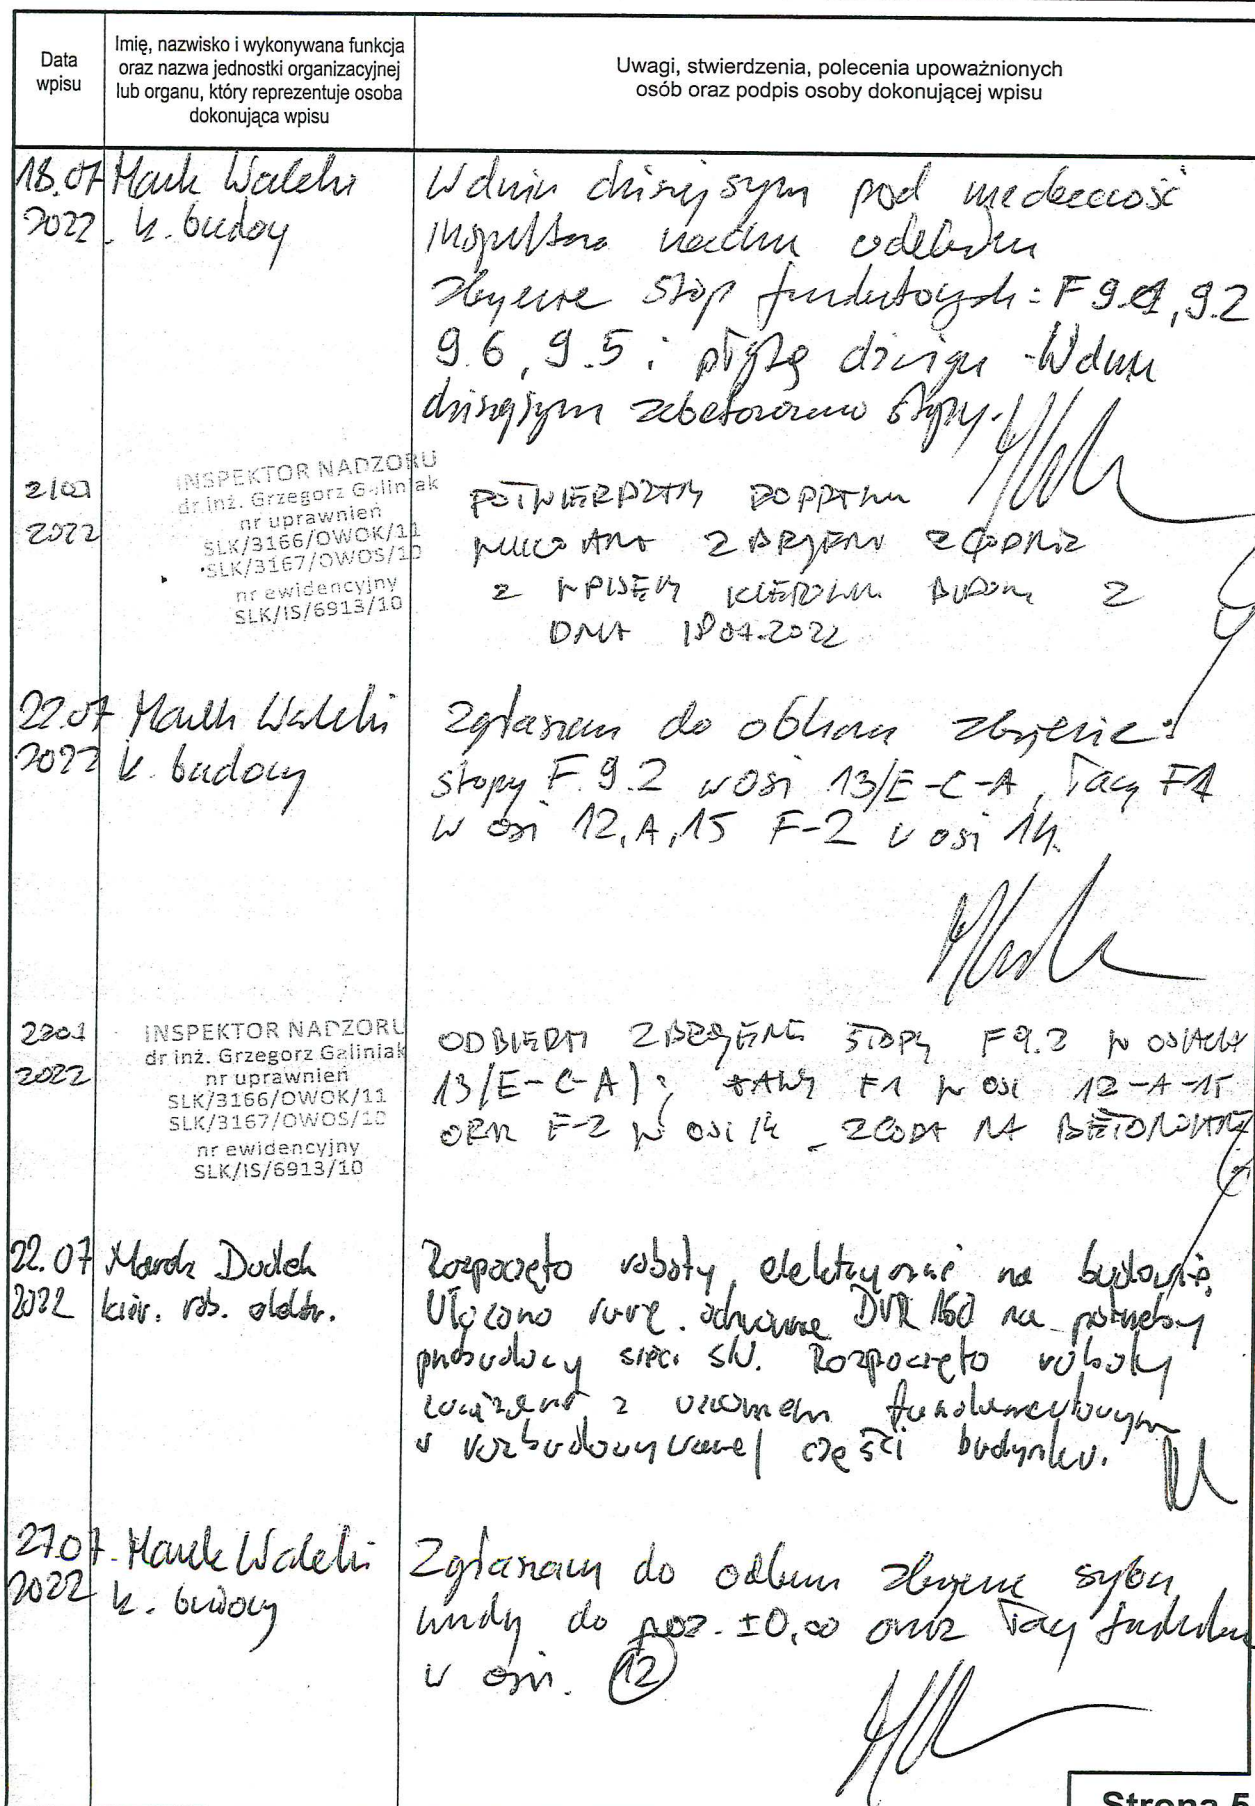 Data
wpisu
Imię, nazwisko i wykonywana funkcja
oraz nazwa jednostki organizacyjnej
lub organu, który reprezentuje osoba
dokonująca wpisu
Uwagi, stwierdzenia, polecenia upoważnionych
osób oraz podpis osoby dokonującej wpisu
18.07
2022
Marek Walecki
k. budowy
W dniu dzisiejszym pod nieobecność
inspektora nadzoru
zbrojenie stóp fundamentowych: F 9.1, 9.2
9.6, 9.5 i płytę dźwigu - W dniu
dzisiejszym zabetonowano stopy.
2022
INSPEKTOR NADZORU
dr inż. Grzegorz Galiniak
nr uprawnień
SLK/3166/OWOK/11
SLK/3167/OWOS/10
nr ewidencyjny
SLK/IS/6913/10
POTWIERDZAM
ZBROJENIA ZGODNIE
Z WPISEM KIEROWN. BUDOWY Z
DNIA 18.07.2022
22.07
2022
Marek Walecki
k. budowy
Zgłaszam do odbioru zbrojenie:
stopy F.9.2 w osi 13/E-C-A, ławy F1
w osi 12, A, 15 F-2 w osi 14.
2022
INSPEKTOR NADZORU
dr inż. Grzegorz Galiniak
nr uprawnień
SLK/3166/OWOK/11
SLK/3167/OWOS/10
nr ewidencyjny
SLK/IS/6913/10
ODBIERAM ZBROJENIE STOPY F9.2 W OSIACH
13/E-C-A); ŁAWY F1 W OSI 12-A-15
ORAZ F-2 W OSI 14 - ZGODA NA BETONOWANIE
22.07
2022
Marek Dudek
kier. rob. elektr.
Rozpoczęto roboty elektryczne na budowie.
Ułożono rurę ochronną DVR 160 na potrzeby
przebudowy sieci SN. Rozpoczęto roboty
związane z uziomem fundamentowym
w rozbudowywanej części budynku.
27.07
2022
Marek Walecki
k. budowy
Zgłaszam do odbioru zbrojenie szybu
windy do poz. ±0,00 oraz ławy fundam
w osi. 12
Strona 5